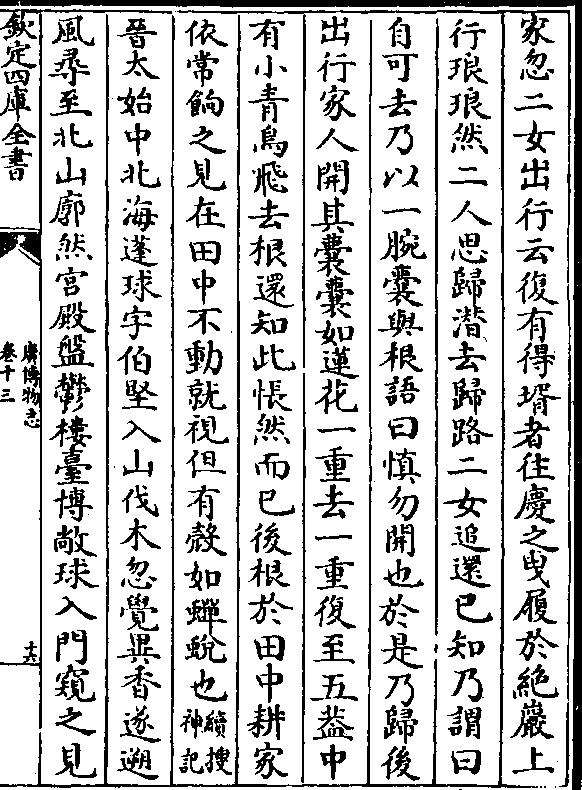 家忽二女出行云復有得壻者往慶之曳履於絶巖上
行琅琅然二人思歸潜去歸路二女追還已知乃謂曰
自可去乃以一腕囊與根語曰慎勿開也於是乃歸後
出行家人開其囊囊如蓮花一重去一重復至五葢中
有小青鳥飛去根還知此悵然而已後根於田中耕家
依常餉之見在田中不動就視但有殼如蟬蛻也續搜神記
晉太始中北海蓬球字伯堅入山伐木忽覺異香遂遡
風尋至北山廓然宮殿盤鬱樓臺博敞球入門窺之見
欽定四庫全書
廣博物志
卷十三
十六